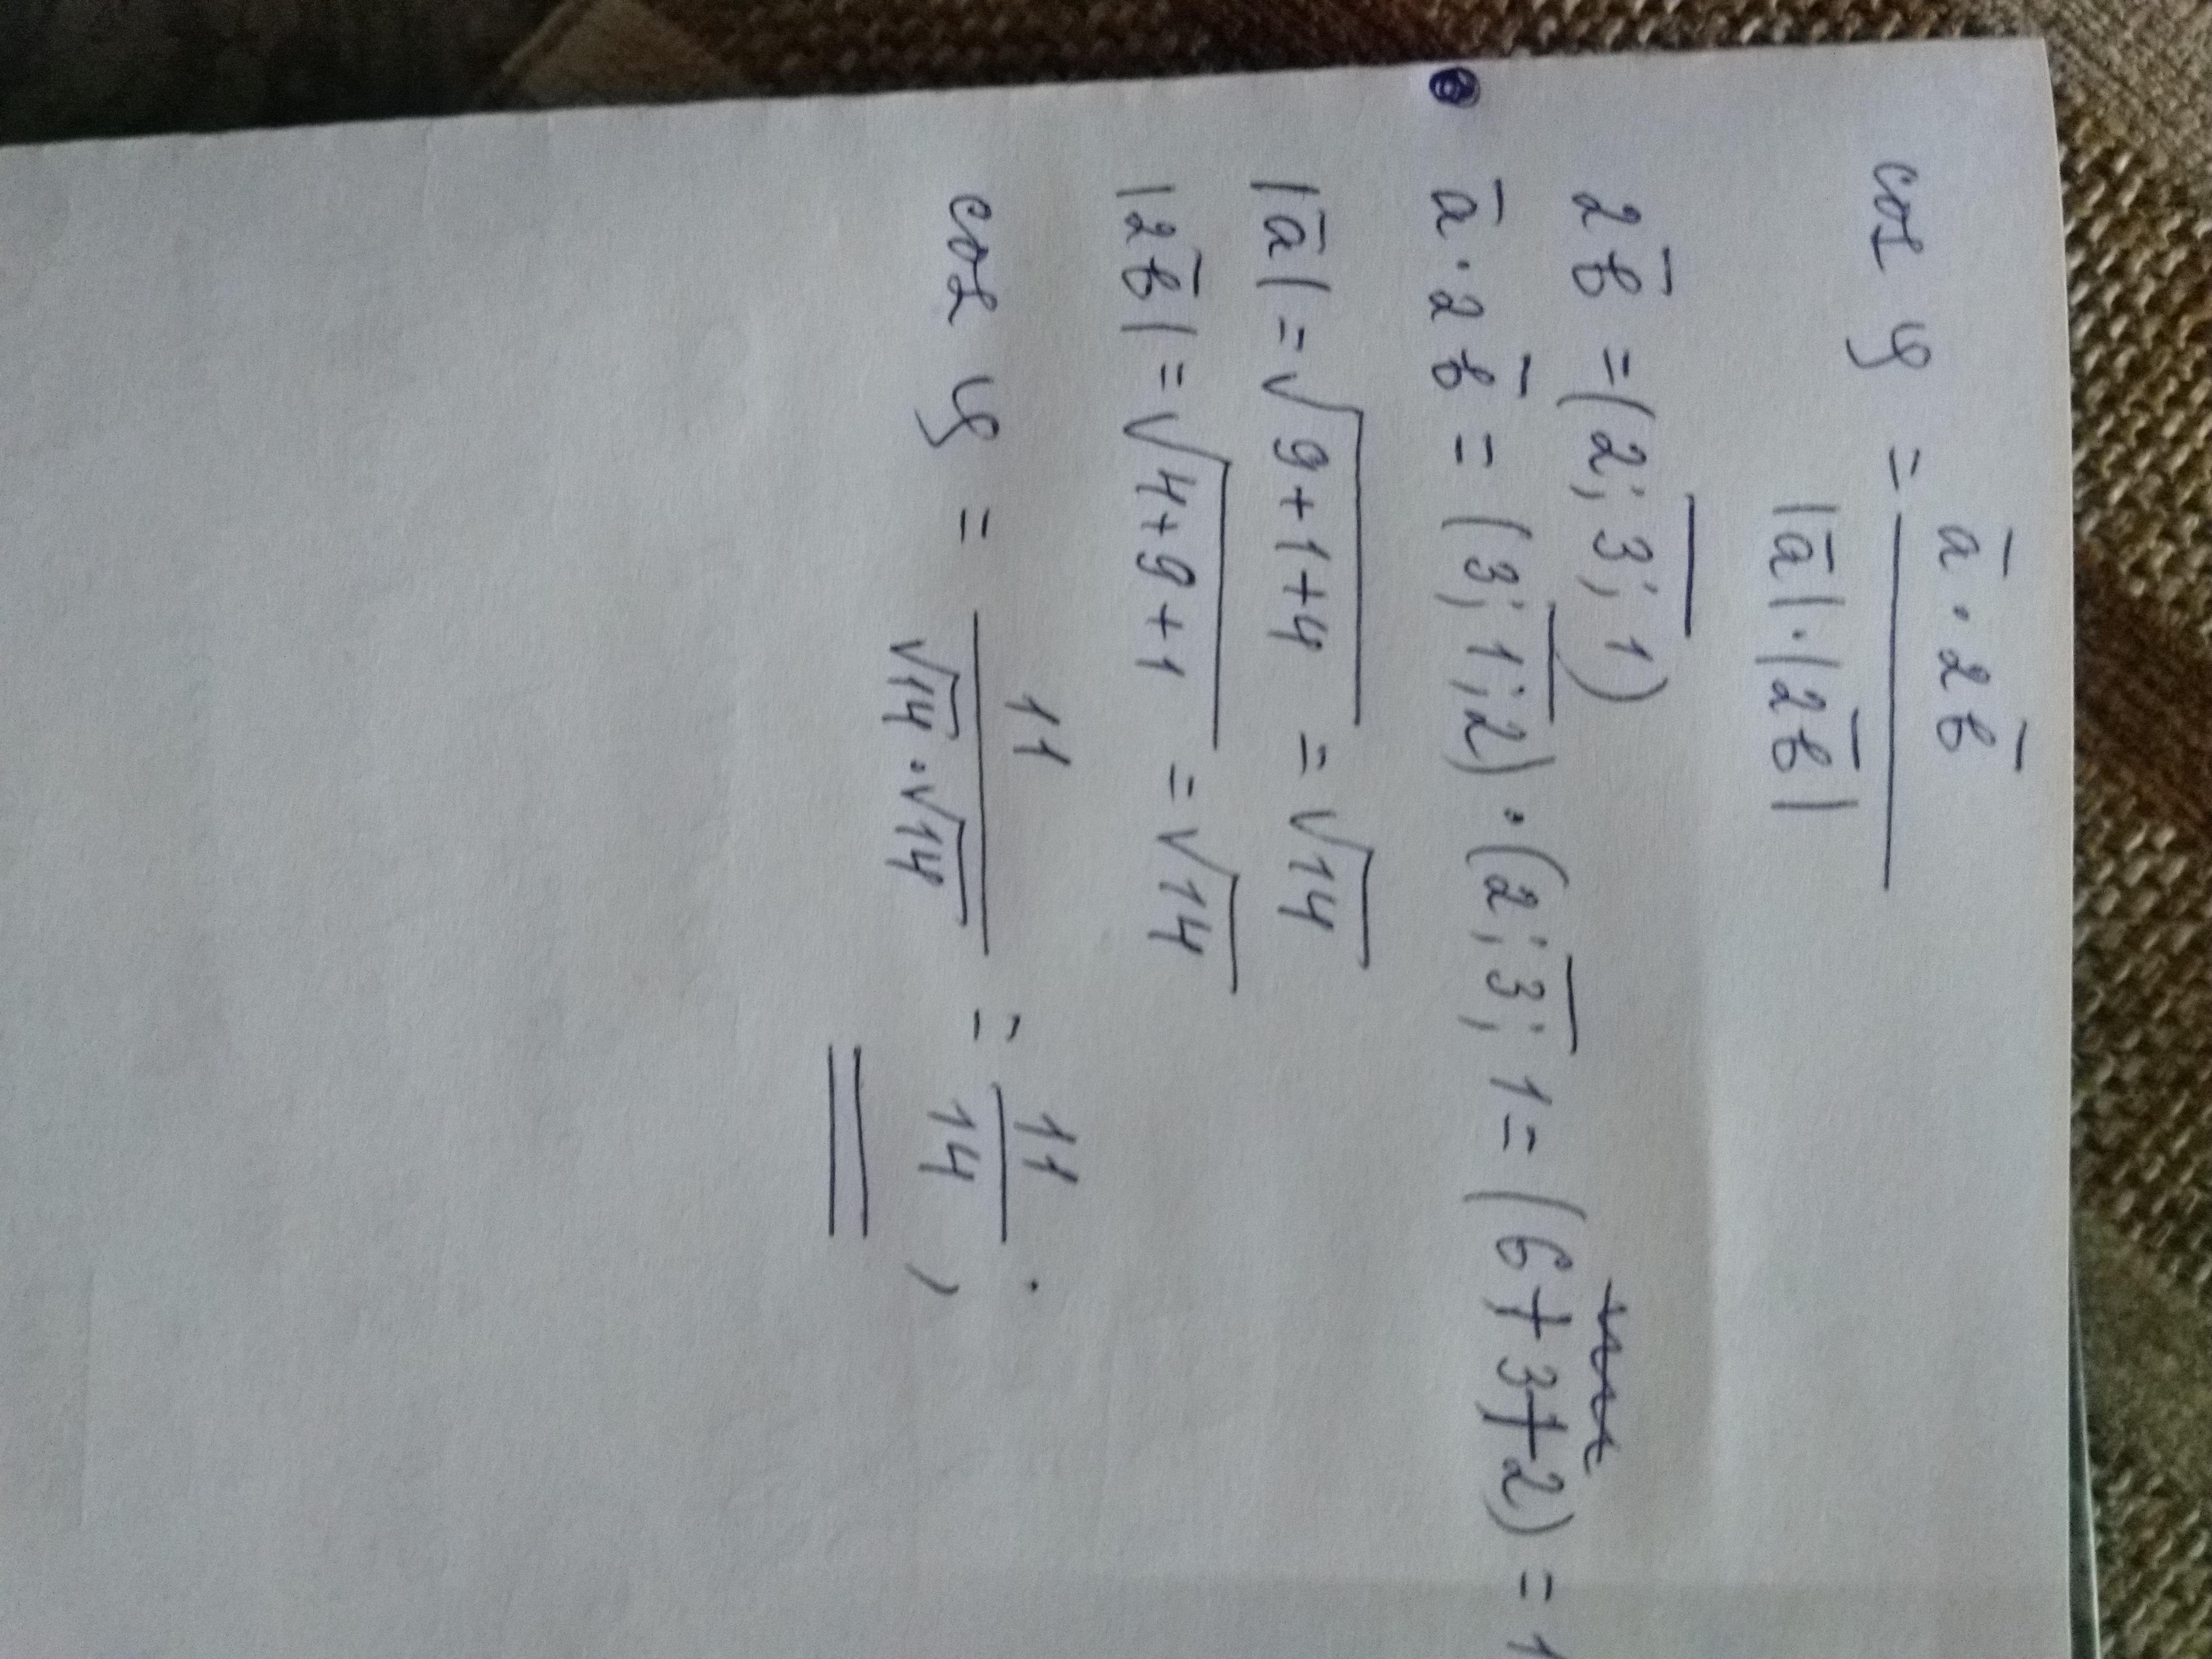 cos φ = a̅ · 2b̅ / |a̅| · |2b̅|
2b̅ = (2; 3; 1)
a̅ · 2b̅ = (3; 1; 2) · (2; 3; 1 = (6+3+2) = 1
|a̅| = √9+1+4 = √14
|2b̅| = √4+9+1 = √14
cos φ = 11 / √14 · √14 = 11 / 14 ;